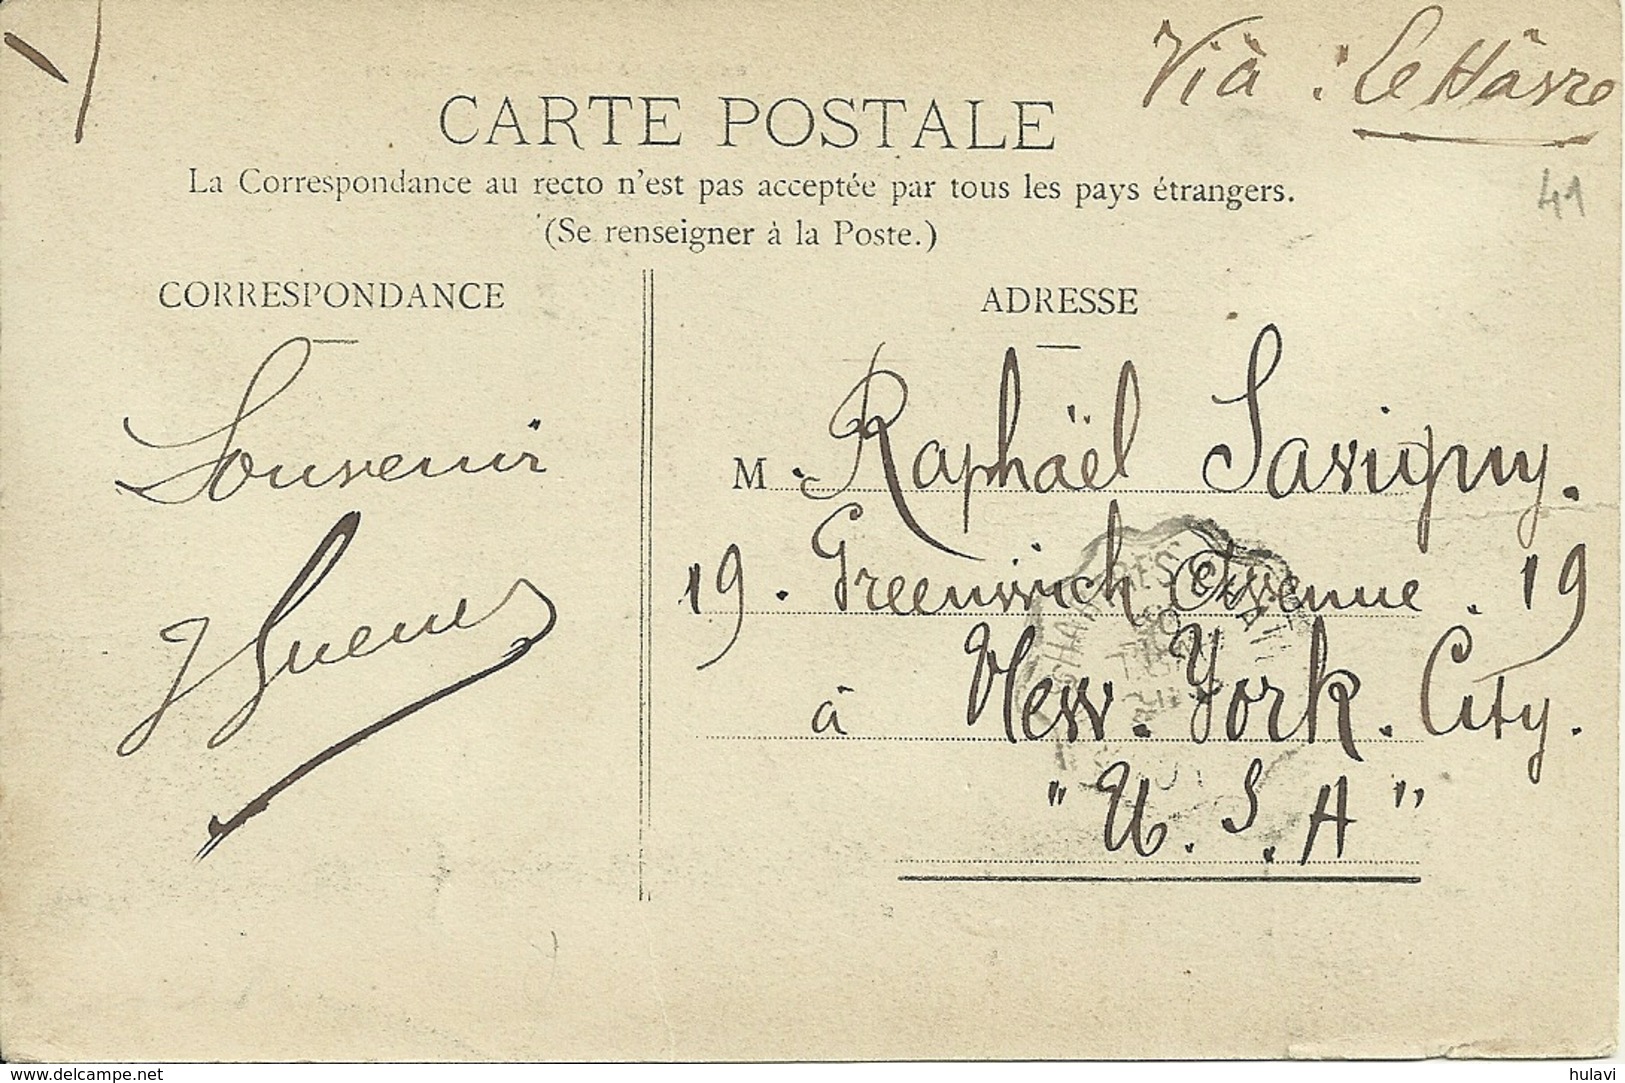 Vià : Le Hâvre
CARTE POSTALE
La Correspondance au recto n'est pas acceptée par tous les pays étrangers.
41
(Se renseigner à la Poste.)
CORRESPONDANCE
ADRESSE
Souvenir
M. Raphaël Savigny.
19. Greenwich Avenue. 19
à New. York. City.
"U. S. A"
www.delcampe.net
hulavi